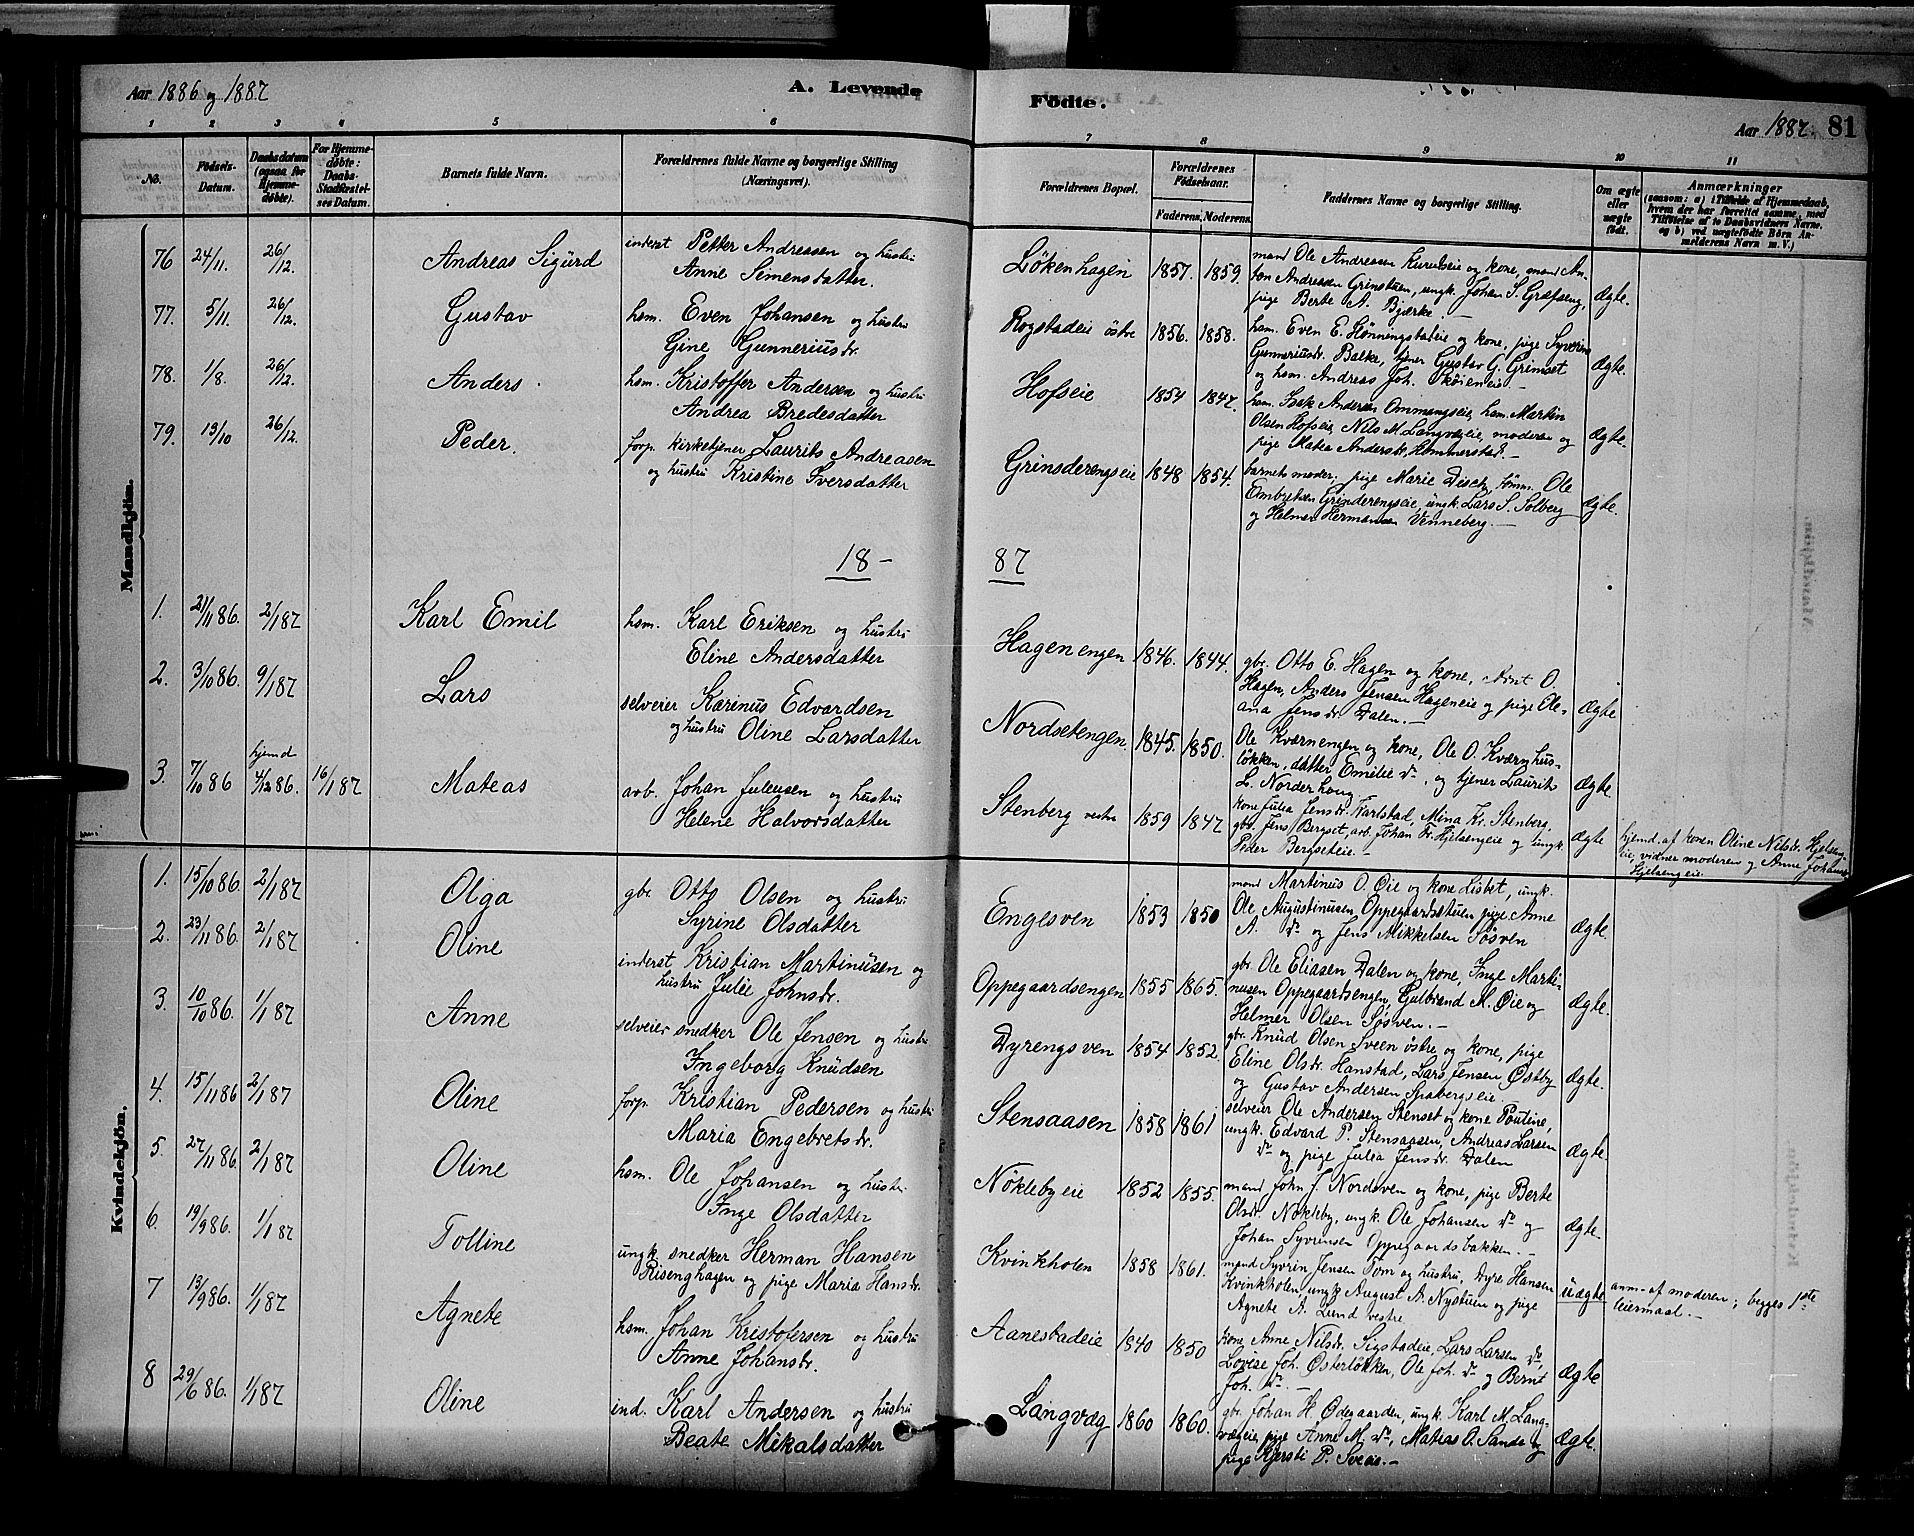 Aar 1886 og 1887
A. Levende
Födte.
Aar 1887. 81
1 2 3 4 5 6 7 8 9 10 11
No.
Födsels-Datum.
Daabsdatum (ogsaa for Hjemmedöbte).
For Hjemmedöbte: Daabs-Stadfæstelses Datum.
Barnets fulde Navn.
Forældrenes fulde Navne og borgerlige Stilling (Næringsvei).
Forældrenes Bopæl.
Forældrenes Födselsaar.
Faderens. Moderens.
Faddernes Navne og borgerlige Stilling.
Om ægte eller uægte födt.
Anmærkninger
(saasom: a) i Tilfælde af Hjemmedaab, hvem der har forrettet samme, med Tilföielse af to Daabsvidners Navne, og b) ved uægtefödte Börn Anmelderens Navn m. V.)
Mandkjön.
76 24/11. 26/12. Andreas Sigurd inderst Petter Andreasen og hustru
Anne Simensdatter.
Lökenhagen 1857. 1859. mand Ole Andreasen Kurudseie og kone, mand An-
ton Andreasen Grinstuen, ungk. Johan S. Græfseng,
pige Berte A. Bjærke. – Ægte.
77. 5/11. 26/12. Gustav hsm. Even Johansen og hustru
Gine Gunneriusdr.
Rogstadeie östre 1856. 1858. hsm. Even E. Hönningstadeie og kone, pige Syverine
Gunneriusdr. Balke, tjener Gustav G. Grimset
og hsm. Andreas Joh. Sköieneie. – Ægte.
78. 1/8. 26/12. Anders. hsm. Kristoffer Andersen og hustru
Andrea Bredesdatter
Hofseie 1854 1847. hsm. Isak Andersen Ommangseie, hsm. Martin
Olsen Hofseie, Nils M. Langvægeie, moderen og
pige Matea Andersdr. Hommerstad. – Ægte.
79. 13/10 26/12. Peder. forp. kirketjener Laurits Andreasen
og hustru Kristine Iversdatter
Grinderengseie 1848 1854. barnets moder, pige Marie Disch, tömm. Ole
Embretsen Grinderengseie, ungk. Lars S. Solberg
og Helmer Hermansen Venneberg. – Ægte.
18– 87
1. 21/11 86. 2/1 87 Karl Emil hsm. Karl Eriksen og hustru
Eline Andersdatter
Hagenengen 1846. 1844. gbr. Otto E. Hagen og kone, Arnt O.
Hagen, Anders Jensen Hageneie og pige Ole-
ana Jensdr. Dalen. – Ægte
2. 3/10 86. 9/1 87 Lars selveier Karinus Edvardsen
og hustru Oline Larsdatter
Nordsetengen 1845. 1850. Ole Kværnengen og kone, Ole O. Kværnhus-
lökken, datter Emilie do. og tjener Laurits
L. Norderhoug. Ægte.
3. 7/10 86 hjemd 4/12 86. 16/1 87 Mateas arb. Johan Juliusen og hustru
Helene Halvorsdatter
Stenberg vestre 1859 1847 kone Julea Jensdr. Karlstad, Mina Kr. Stenberg,
gbr. Jens Bergset, arb. Johan Fr. Hjelsengeie og ungk.
Peder Bergseteie. – Ægte
hjemd. af konen Oline Nilsdr. Hjelseng-
eie, vidner moderen og Anne Johans
Hjelsengeie
Kvindekjön.
1. 15/10 86. 2/1 87 Olga gbr. Otto Olsen og hustru
Syrine Olsdatter
Engesven 1853 1850 mand Martinus O. Öie og kone Lisbet, ungk.
Ole Augustinusen Oppegaardstuen, pige Anne
A. do. og Jens Mikkelsen Sösven Ægte.
2. 23/11 86. 2/1 87 Oline inderst Kristian Martinusen og
hustru Julie Johnsdr.
Oppegaardsengen 1855 1865. gbr. Ole Eliasen Dalen og kone, Inge Marti-
nusen Oppegaardsengen, Gulbrand M. Öie og
Helmer Olsen Sösven. – Ægte.
3. 10/10 86. 1/1 87 Anne selveier snedker Ole Jensen og hustru
Ingeborg Knudsen
Dyrengsven 1854 1852. gbr. Knud Olsen Sveen östre og kone, pige
Eline Olsdr. Hanstad, Lars Jensen Östby
og Gustav Andersen Spabergseie. Ægte.
4. 15/11 86 2/1 87 Oline forp. Kristian Pedersen og hustru
Maria Engebretsdr.
Stensaasen 1858 1861 selveier Ole Andersen Stenset og kone Pouline,
ungk. Edvard P. Stensaasen, Andreas Larsen
do og pige Julea Jensdr. Dalen Ægte.
5. 27/11 86. 2/1 87 Oline hsm. Ole Johansen og hustru
Inge Olsdatter
Nöklebyeie 1852 1855. mand John J. Nordsven og kone, pige Berte
Olsdr. Nökleby, ungk. Ole Johansen do og
Johan Syversen Oppegaardsbakken. – Ægte.
6. 19/9 86. 1/1 87 Tolline ungk. snedker Herman Hansen
Risenghagen og pige Maria Hansdr.
Kvinkholen 1858 1861. mand Syvrin Jensen Tom og hustru, Dyre Hansen
Kvinkholen, ungk. August A. Nystuen og pige
Agnete A. Lund vestre. Uægte
anm. af moderen; begges 1ste
leiermaal. –
7 13/9 86. 1/1 87 Agnete hsm. Johan Kristofersen og hustru
Anne Johansdr.
Aanestadeie 1840 1850 kone Anne Nilsdr. Sigstadeie, Lars Larsen do,
Lovise Joh. Österlökken, Ole Joh. do og Bernt
Joh. do. – Ægte
8 29/6 86. 1/1 87 Oline ind. Karl Andersen og hustru
Beate Mikalsdatter
Langvæg 1860 1860. gbr. Johan H. Ödegaarden, ungk. Karl M. Lang-
vægeie, pige Anne M. do, Mateas O. Sande og
pige Kjersti P. Sveis. – Ægte.